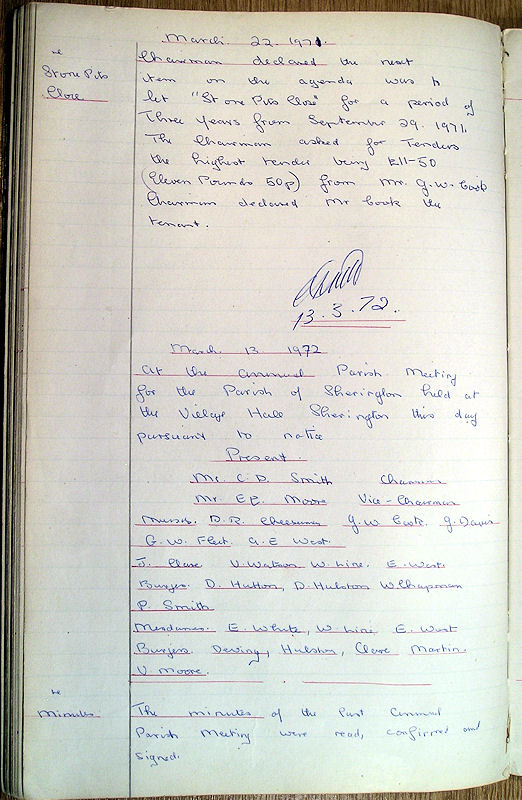 March. 22. 1971.
re
Stone Pits
Close.
Chairman declared the next
item on the agenda was to
let "Stone Pits Close" for a period of
Three Years from September 29. 1971.
The Chairman asked for Tenders
the highest tender being £11-50
(Eleven Pounds 50p) from Mr. G.W. Cook
Chairman declared Mr Cook the
tenant.
13.3.72.
March 13 1972
At the annual Parish Meeting
for the Parish of Sherington held at
the Village Hall Sherington this day
pursuant to notice
Present.
Mr. C.D. Smith Chairman
Mr. E.P. Moore Vice-Chairman
Messrs. D.R. Cheesman G.W. Cook. G. Davis
G.W. Fleet. A.E West.
J. Clare V. Watson W. Line. E. West.
Burgess. D. Hutton, D. Hulston W. Chapman
P. Smith
Mesdames. E. White, W. Line E. West
Burgess. Dewing, Hulston, Clare Martin.
V Moore.
re
Minutes
The minutes of the last annual
Parish Meeting were read, confirmed and
signed.